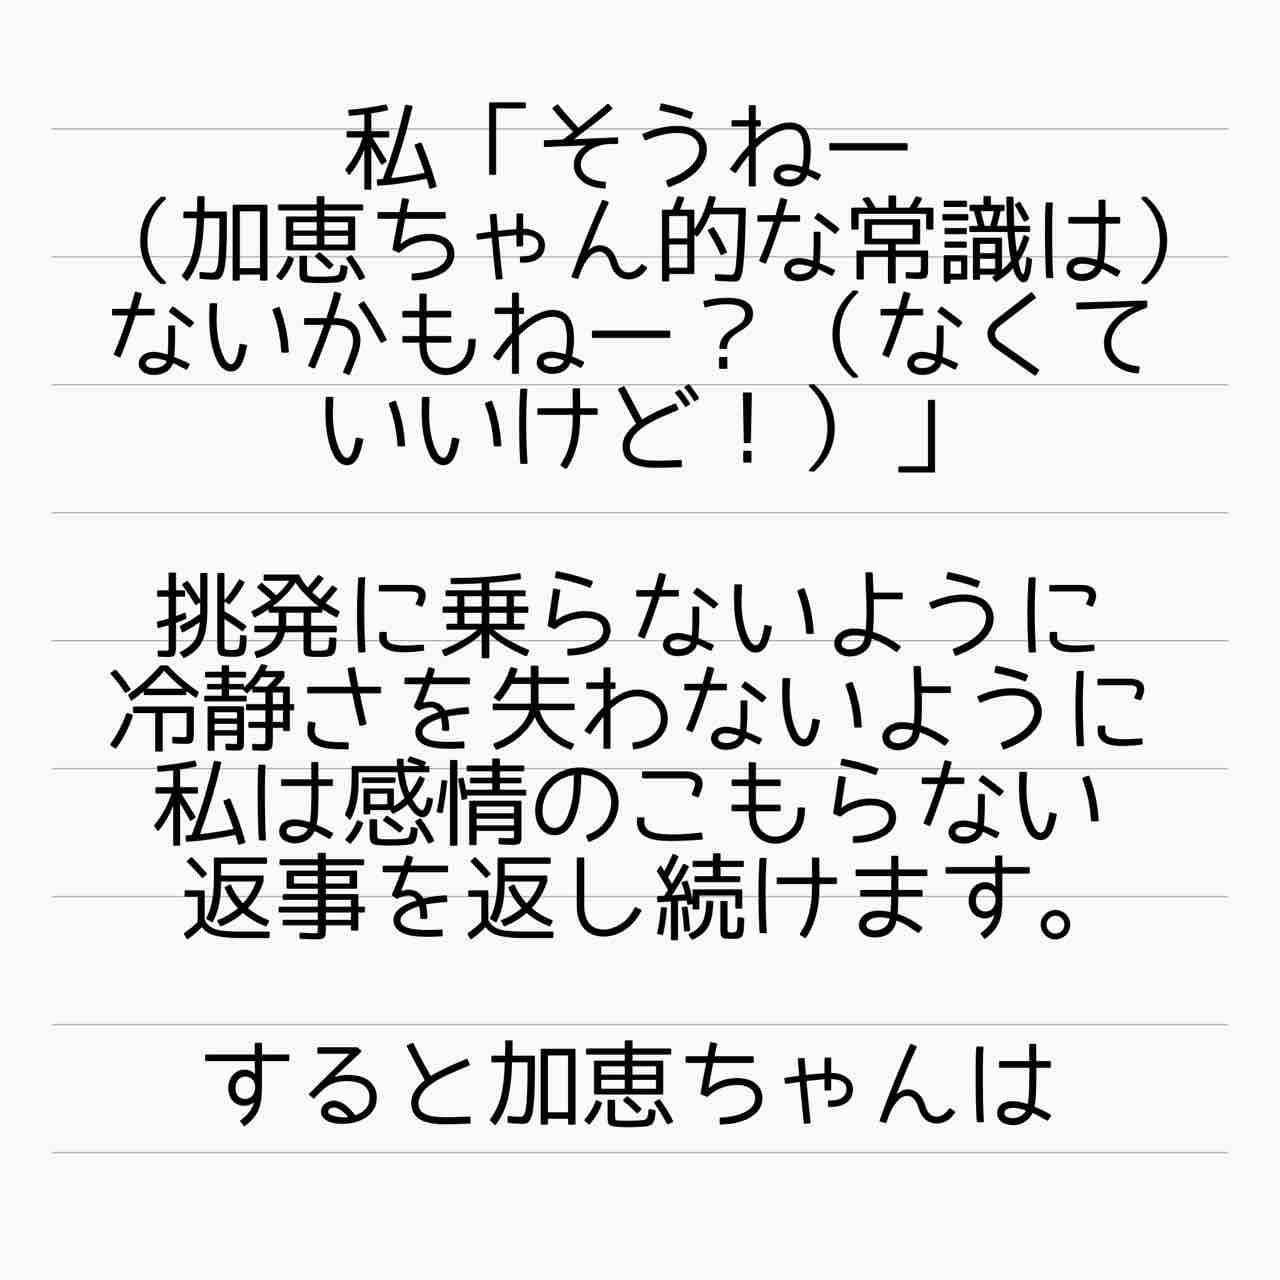 私「そうねー
（加恵ちゃん的な常識は）
ないかもねー？（なくて
いいけど！）」
挑発に乗らないように
冷静さを失わないように
私は感情のこもらない
返事を返し続けます。
すると加恵ちゃんは